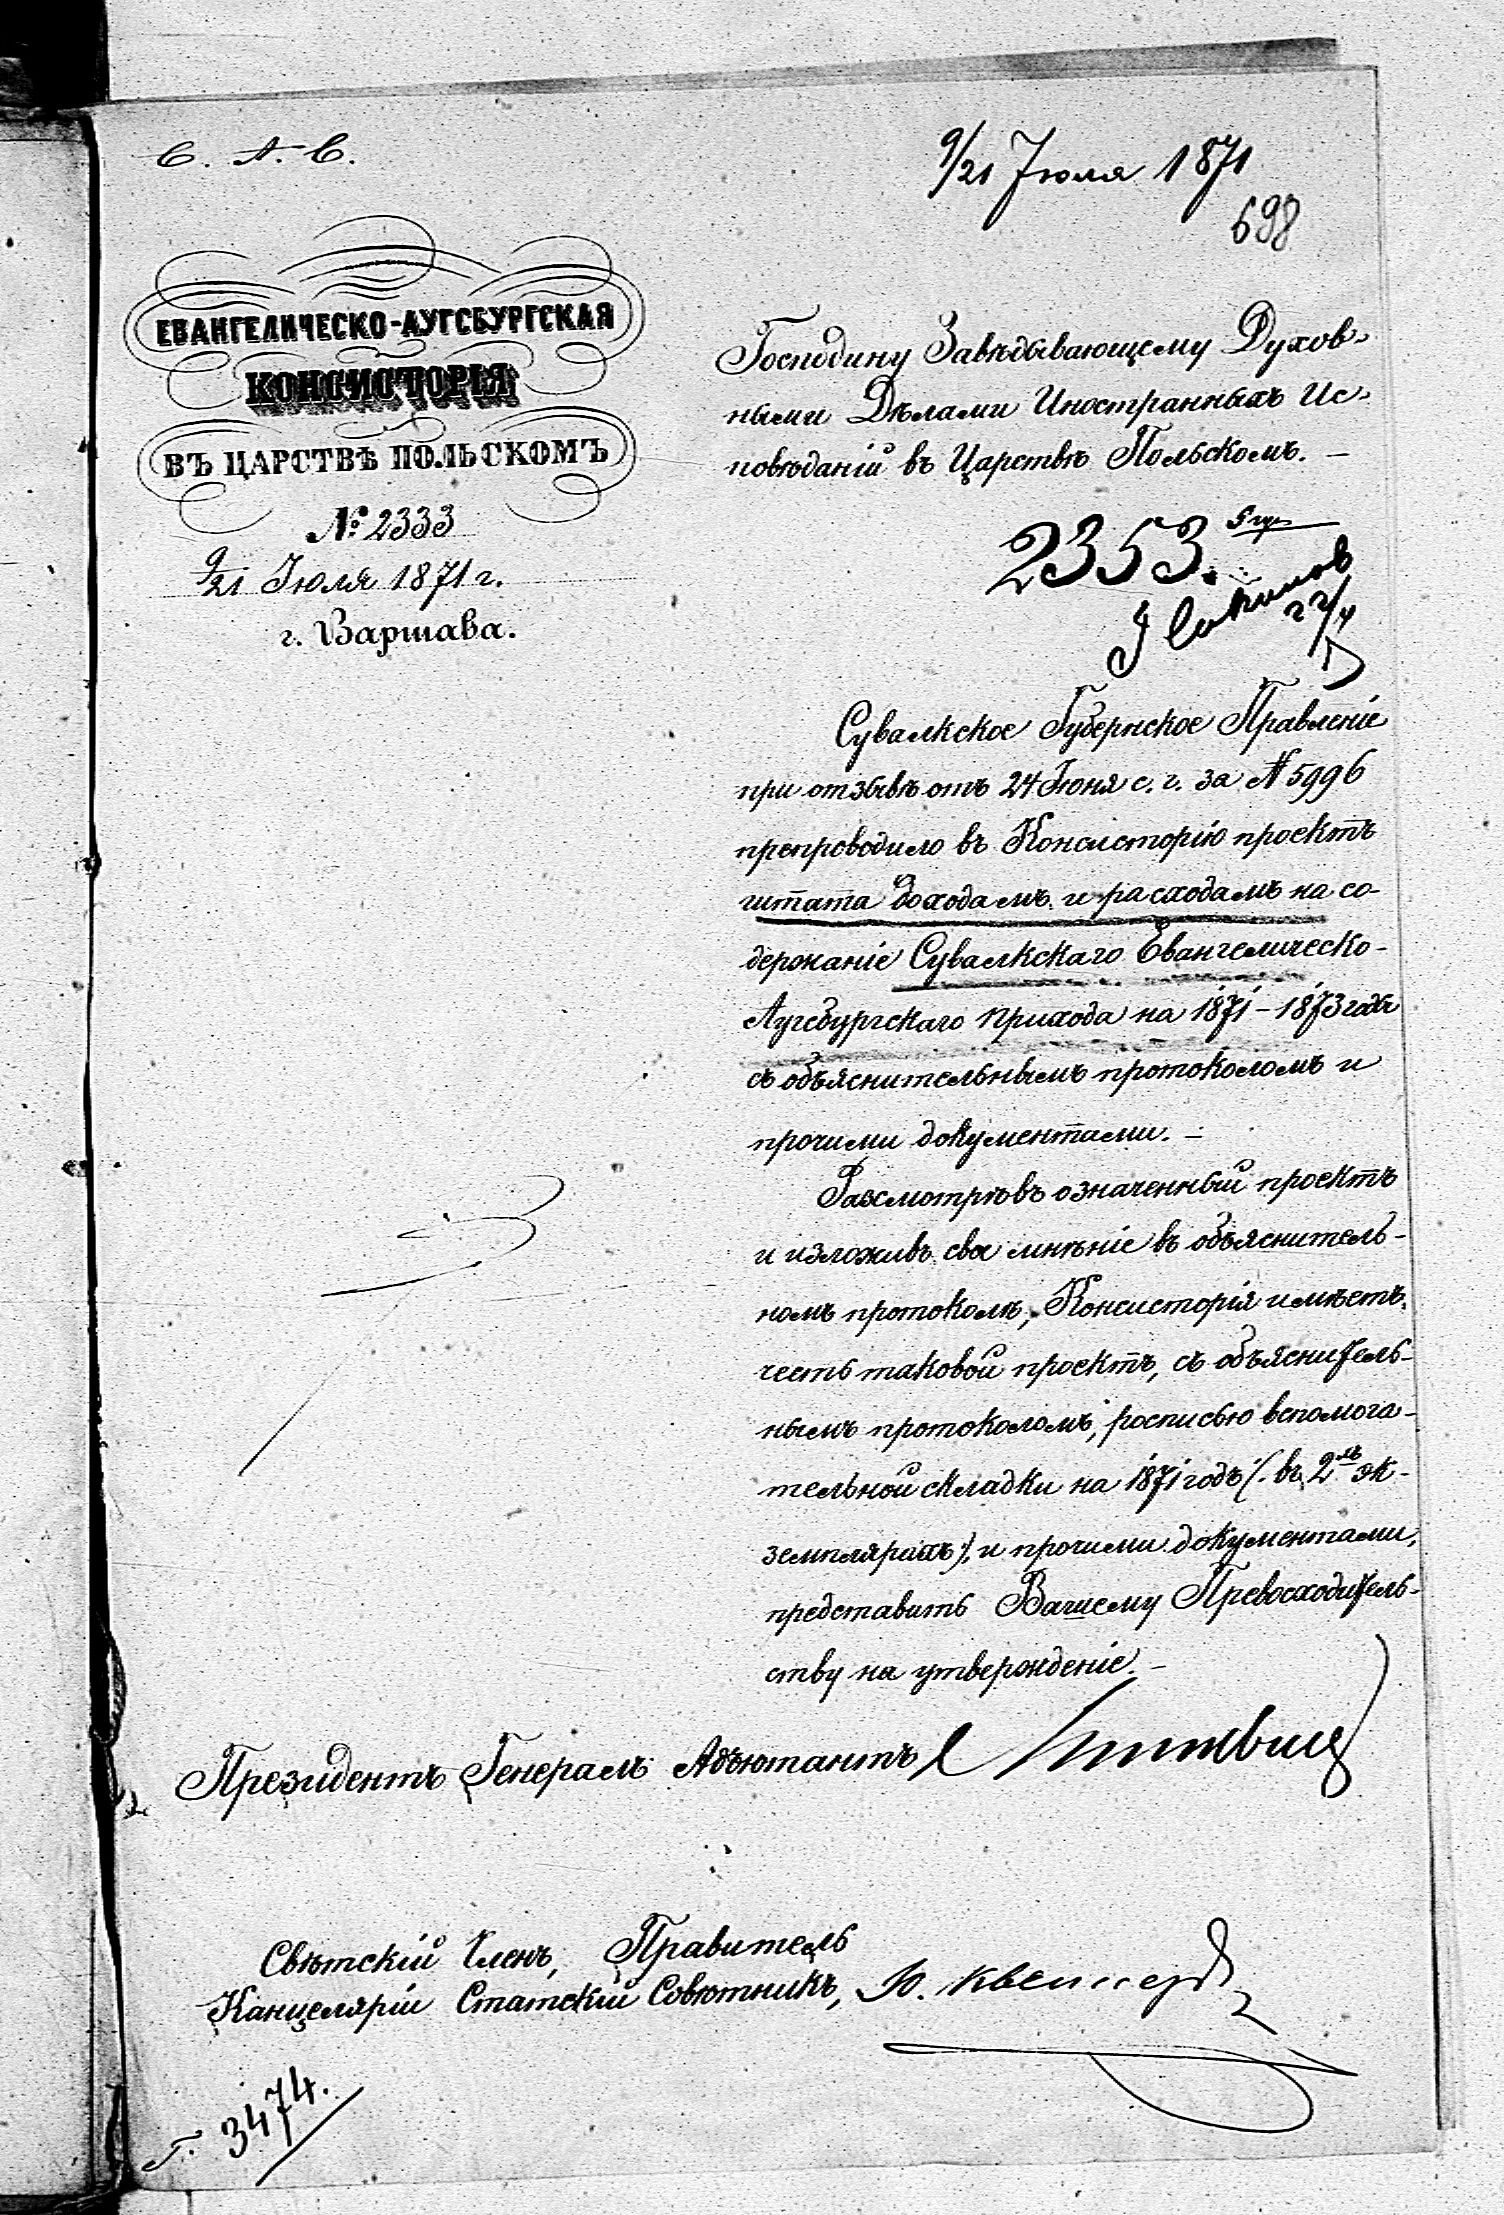 С. А. С.
9/21 Іюля 1871
698
ЕВАНГЕЛИЧЕСКО-АУГСБУРГСКАЯ
КОНСИСТОРІЯ
ВЪ ЦАРСТВѢ ПОЛЬСКОМЪ
№ 2333
9/21 Іюля 1871 г.
г. Варшава.
Господину Завѣдывающему Духов-
ными Дѣлами Иностранныхъ Ис-
повѣданій въ Царствѣ Польскомъ. —
2353.
22/
Сувалкское Губернское Правленіе
при отзывѣ отъ 24 Іюня с. г. за № 5996
препроводило въ Консисторію проектъ
штата доходамъ и расходамъ на со-
держаніе Сувалкскаго Евангелическо-
Аугсбургскаго прихода на 1871-1873 годы
съ объяснительнымъ протоколомъ и
прочими документами. —
Разсмотрѣвъ означенный проектъ
и изложивъ свое мнѣніе въ объяснитель-
номъ протоколѣ, Консисторія имѣетъ
честь таковой проектъ, съ объяснитель-
нымъ протоколомъ, росписью вспомога-
тельной складки на 1871 годъ /. въ 2хъ эк-
земплярахъ ./, и прочими документами,
представить Вашему Превосходитель-
ству на утвержденіе. —
Президентъ Генералъ Адъютантъ
Свѣтскій Членъ, Правитель
Канцеляріи Статскій Совѣтникъ,
Г. 3474.